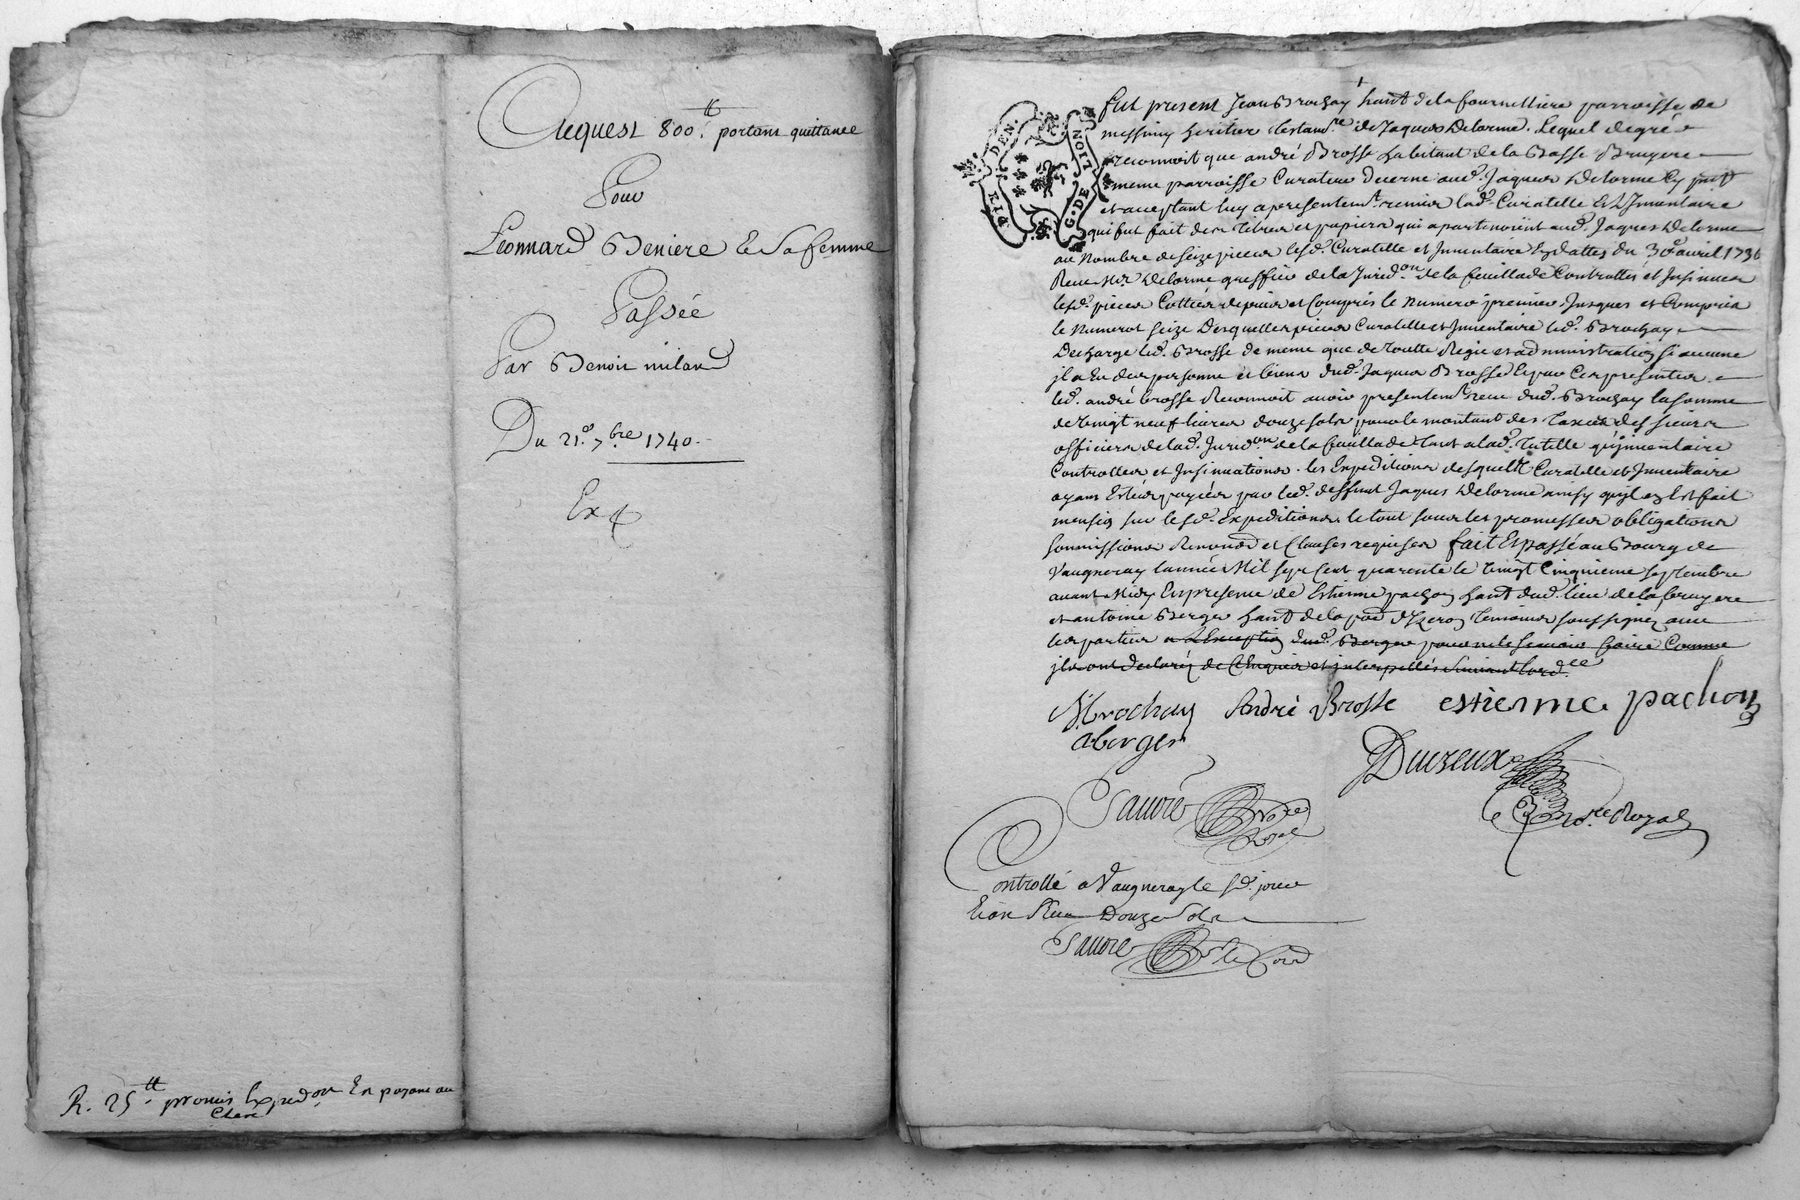 Acquest 800.tt portant quittance
Pour
Léonnard Beniere et Sa femme
Passée
Par Benoit milan
Du 21.e 7.bre 1740.
Ex
R. 25.tt promis Expedon En payant au
GEN. DE LION
Fut present Jean Brochay hant de la fournilliere parroisse de
messimy heritier testam.re de Jaques Delorme. Lequel degré
reconnoit que andré Brosse habitant de la Basse Bruyere
meme parroisse Curateur decerné aud. Jaques Delorme Cy pnt
et acceptant luy a presentemt remis lad. Curatelle et L'Inventaire
qui fut fait des titres et papiers qui apartenoient aud. Jaques Delorme
au Nombre de seize pieces lesd. Curatelle et Inventaire En dattes du 30e avril 1736
Receu Mr Delorme greffier de la Jurid.on de la feuillade Controllés et Insinués
lesd. pieces Cottées depuis et Compris le numero premier Jusques et Compris
le Numerot seize Desquelles pieces Curatelle et Inventaire led. Brochay
Decharge led. Brosse de meme que de toutte Regie et administration si aucune
jl a Eu des personne et biens dud. Jaques Brosse Et par Ces presentes
led. andré brosse Reconnoit avoir presentemt receu dud. Brochay la somme
de vingt neuf livres douze sols pour le montant des taxes des sieurs
officiers de lad. Jurid.on de la feuillade tant a lad. tutelle qu'jnventaire
Controlles et Insinuations. les Expeditions desquelles Curatelle et Inventaire
ayant Estées payées par led. deffunt Jaques Delorme ainsy qu'jl en Est fait
mention sur lesd. Expeditions. le tout sous les promesses obligations
soumissions Renond et Clauses requises fait Et passé au Bourg de
Vaugneray l'année Mil sept Cent quarente le vingt Cinquieme septembre
avant Midy En presence de Estienne pachon hant dud. lieu de la bruyere
et antoine Berger hant de la pard d'Yzeron temoins soussignez avec
les parties a L'Exception dud. Berger pour ne le scavoir faire Comme
jls ont declarés de Enquis et interpellés suivant l'ord.ce
Brochay André Brosse estienne pachon
a berger
Ducreux
Sauvré No.re Royal
No.re Royal
Controllé a Vaugneray le sd. jour
Et an Reçu Douze Sols
Sauvré